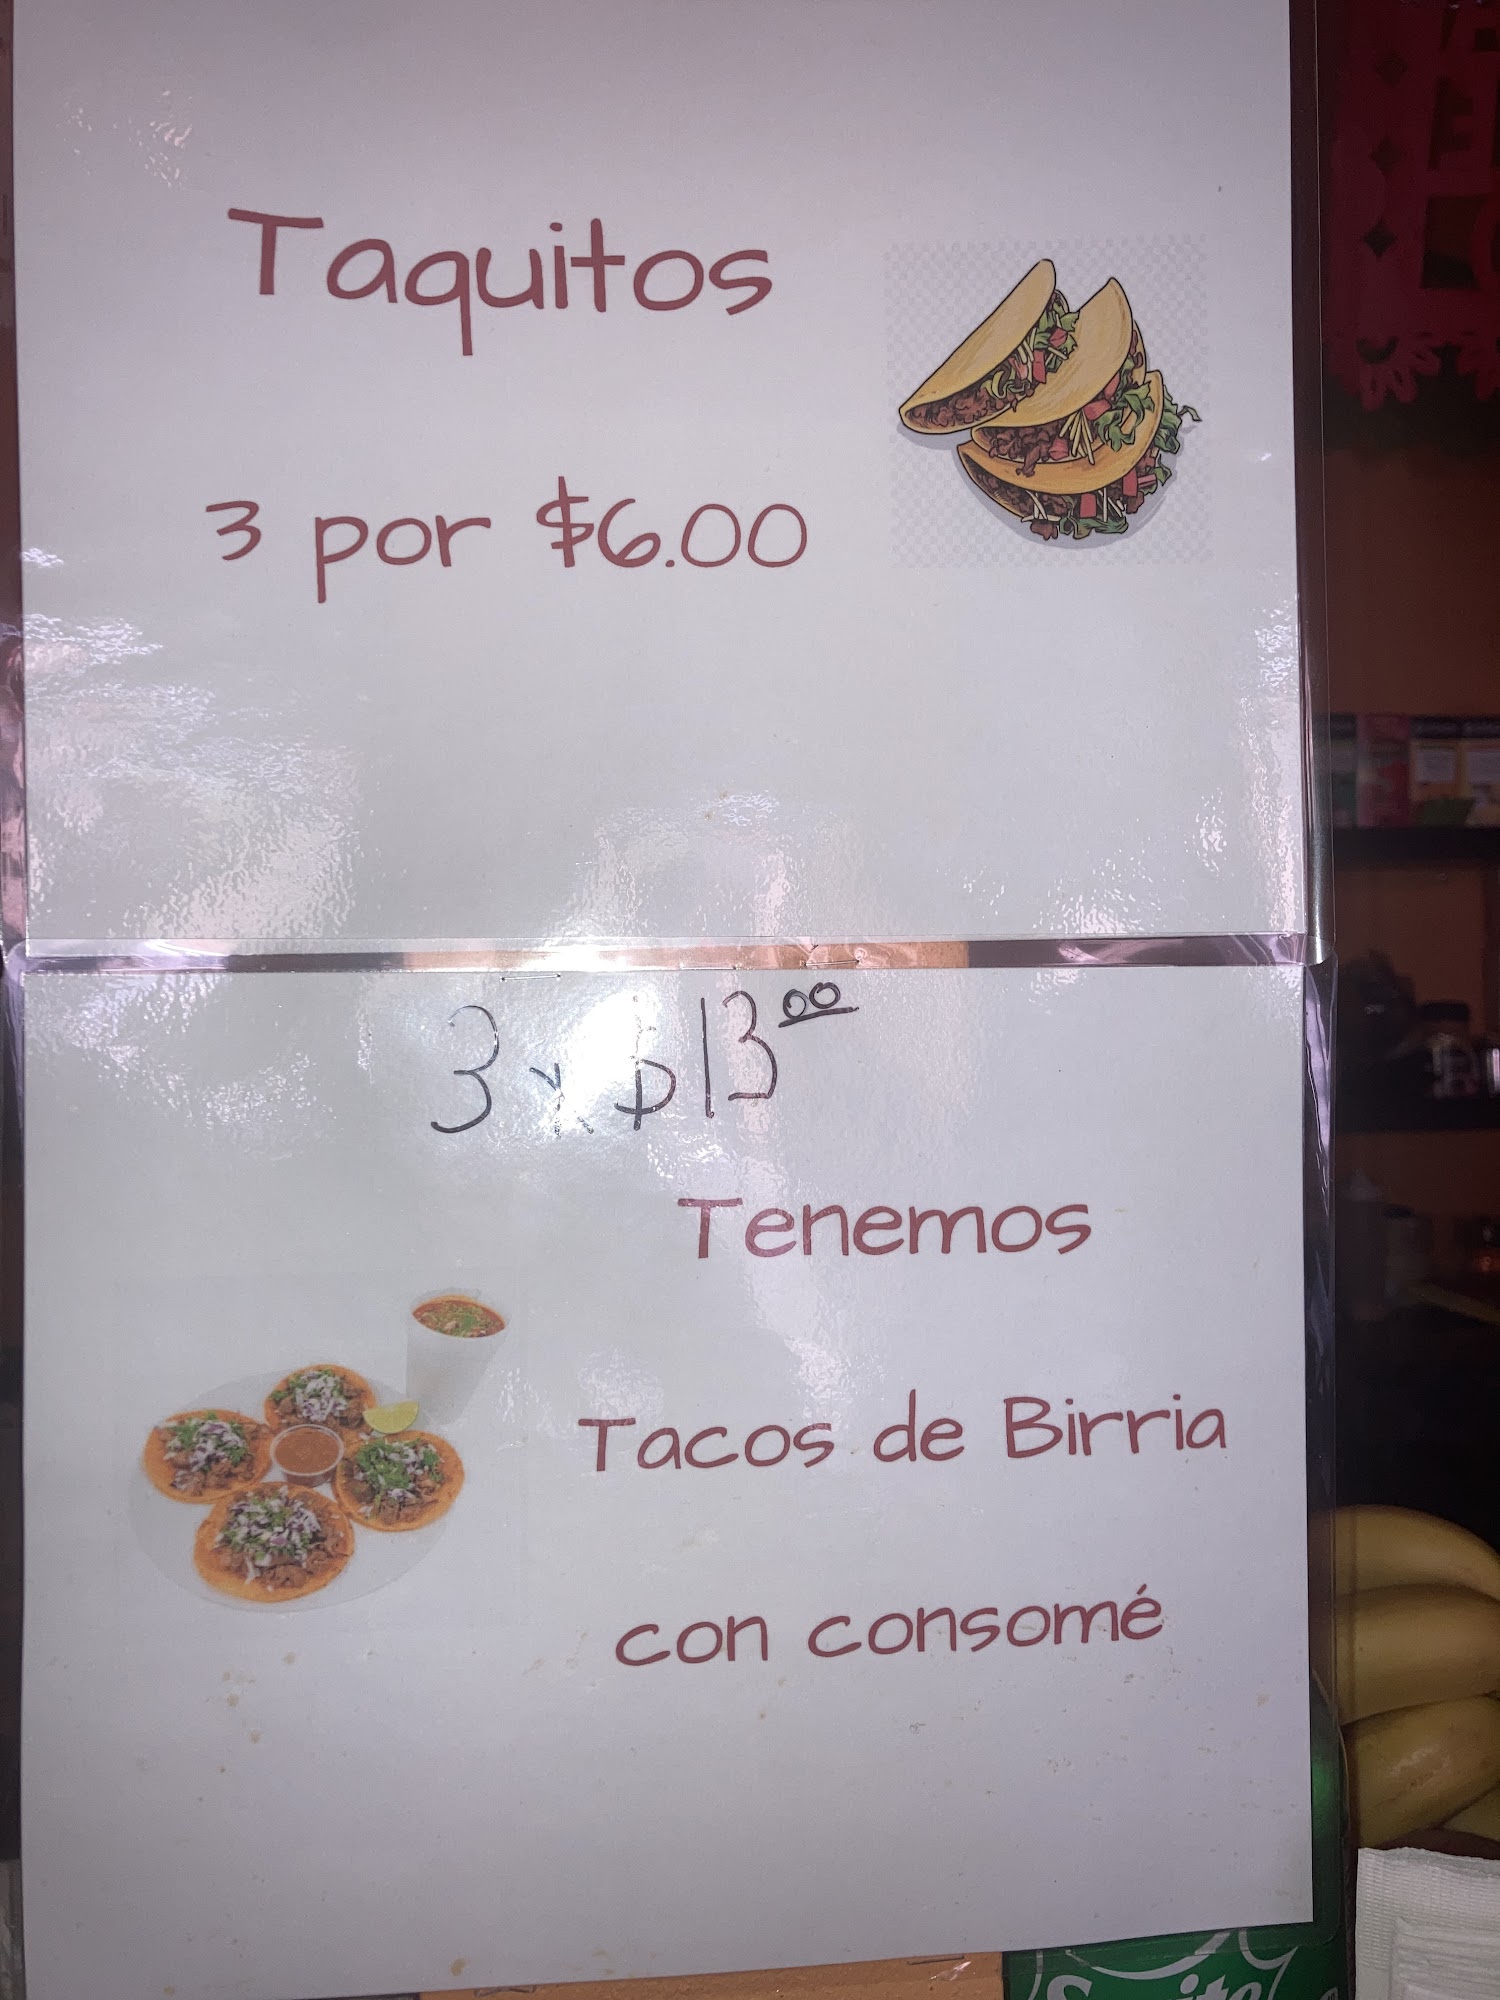 Taquitos
3 por $6.00
3 x $13.00
Tenemos
Tacos de Birria
con consomé
Sprite